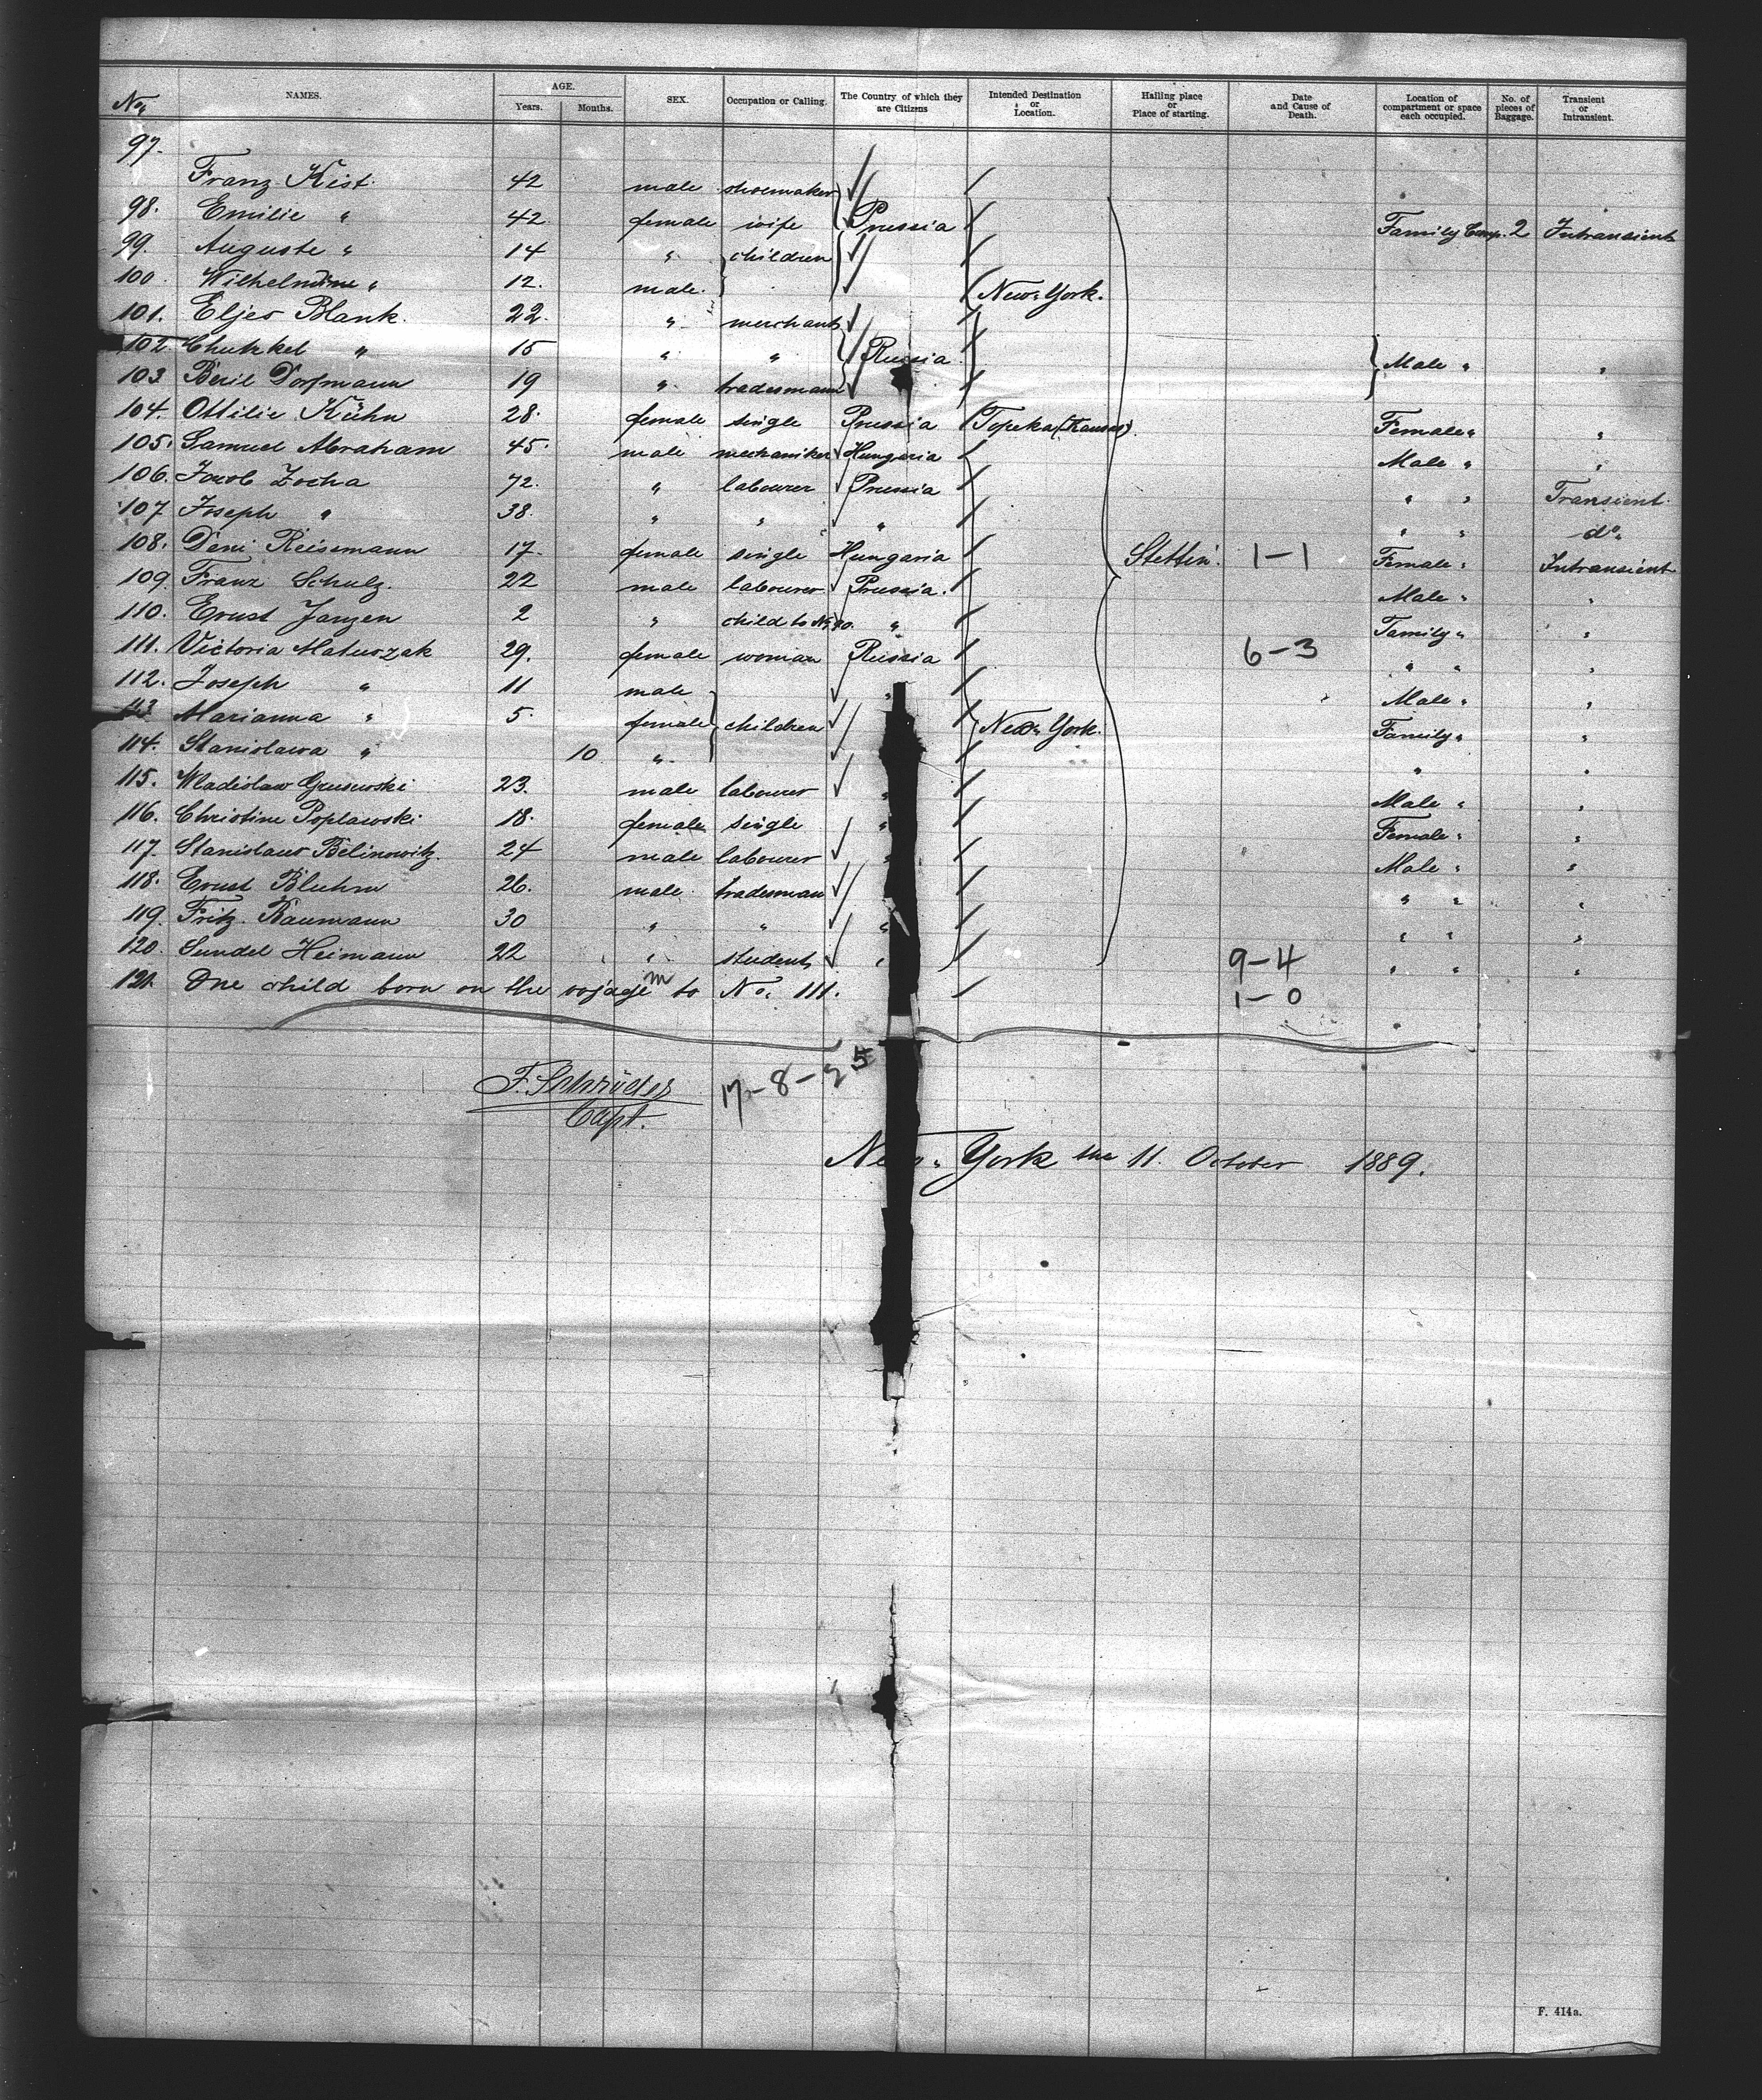 No. NAMES. AGE. Years. Months. SEX. Occupation or Calling. The Country of which they are Citizens Intended Destination or Location. Hailing place or Place of starting. Date and Cause of Death. Location of compartment or space each occupied. No. of pieces of Baggage. Transient or Intransient.
97. Franz Kist. 42 male shoemaker
98. Emilie " 42 female wife Prussia Family Comp. 2 Intransient
99. Auguste " 14 " children
100. " 12. male. New-York.
101. Eljes Blank. 22. " merchant
102. " 15 " " Russia. Male "  "
103 Beril Dorfmann 19 " tradesmann
104. Ottilie Kühn 28. female single Prussia Topeka (Kansas). Female " "
105. Samuel Abraham 45. male mechaniker Hungaria Male " "
106. Jacob Zocha 72. " labourer Prussia " " Transient.
107 Joseph " 38. " " " " " do.
108. Deni Reisemann 17. female single Hungaria Stettin. 1-1 Female " Intransient
109. Franz Schulz. 22 male labourer Prussia. Male " "
110. Ernst Janzen 2 " child to No. 90. " Family " "
111. Victoria Matuszak 29. female woman Russia 6-3 " " "
112. Joseph " 11 male " Male " "
113 Marianna " 5. female children New-York. Family " "
114. Stanislawa " 10 " " "
115. Wladislaw male labourer 23. " Male " "
116. Christine Poplawski 18. female single " Female " "
117. Stanislaus Belinowitz. 24 male labourer " Male " "
118. Ernst Bluhm 26. male tradesman " " "
119. Fritz Baumann 30 " " " " " "
120. Sundel Heimann 22 " student " 9-4 " " "
121. One child born on the vojage m to No. 111. 1-0
F. Schröder 17-8-25
Capt.
New-York the 11. October 1889.
F. 414a.